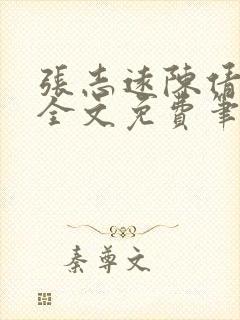 張志遠陳倩
全文免費筆
秦尊文